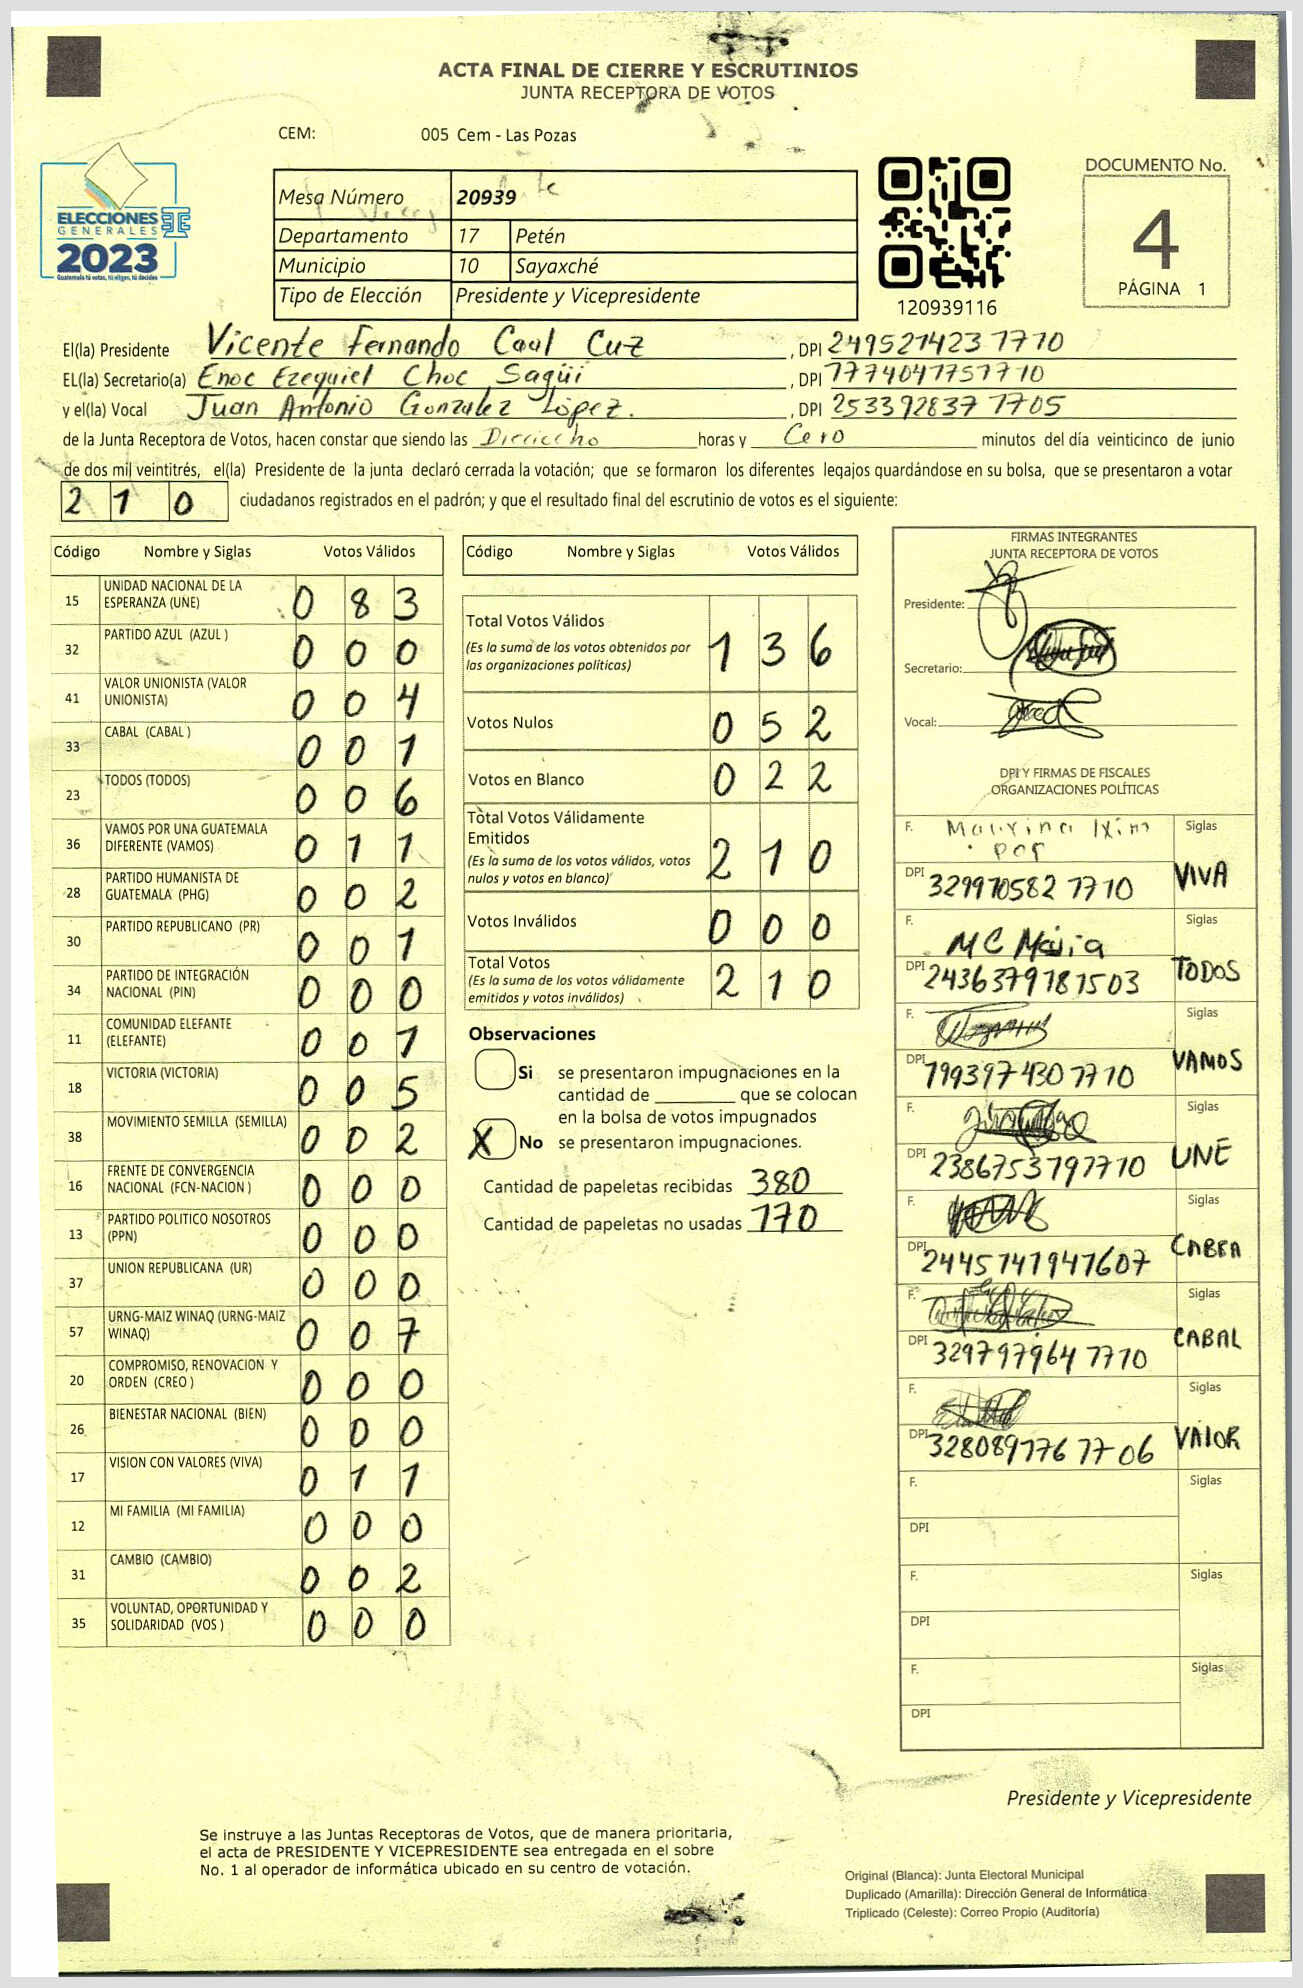 ACTA FINAL DE CIERRE Y ESCRUTINIOS
JUNTA RECEPTORA DE VOTOS
CEM: 005 Cem - Las Pozas
ELECCIONES
GENERALES
2023
Guatemala tú votas, tú eliges, tú decides
Mesa Número 20939
Departamento 17 Petén
Municipio 10 Sayaxché
Tipo de Elección Presidente y Vicepresidente
120939116
DOCUMENTO No.
4
PÁGINA 1
El(la) Presidente Vicente Fernando Caal Cuz, DPI 249521423 1710
EL(la) Secretario(a) Enoc Ezequiel Choc Sagüi, DPI
y el(la) Vocal Juan Antonio Gonzalez López., DPI 253392837 1705
de la Junta Receptora de Votos, hacen constar que siendo las Dieciocho horas y Cero minutos del día veinticinco de junio
de dos mil veintitrés, el(la) Presidente de la junta declaró cerrada la votación; que se formaron los diferentes legajos quardándose en su bolsa, que se presentaron a votar
210 ciudadanos registrados en el padrón; y que el resultado final del escrutinio de votos es el siguiente:
Código Nombre y Siglas Votos Válidos
15 UNIDAD NACIONAL DE LA ESPERANZA (UNE) 083
32 PARTIDO AZUL (AZUL ) 000
41 VALOR UNIONISTA (VALOR UNIONISTA) 004
33 CABAL (CABAL ) 001
23 TODOS (TODOS) 006
36 VAMOS POR UNA GUATEMALA DIFERENTE (VAMOS) 011
28 PARTIDO HUMANISTA DE GUATEMALA (PHG) 002
30 PARTIDO REPUBLICANO (PR) 001
34 PARTIDO DE INTEGRACIÓN NACIONAL (PIN) 000
11 COMUNIDAD ELEFANTE (ELEFANTE) 001
18 VICTORIA (VICTORIA) 005
38 MOVIMIENTO SEMILLA (SEMILLA) 002
16 FRENTE DE CONVERGENCIA NACIONAL (FCN-NACION ) 000
13 PARTIDO POLITICO NOSOTROS (PPN) 000
37 UNION REPUBLICANA (UR) 000
57 URNG-MAIZ WINAQ (URNG-MAIZ WINAQ) 007
20 COMPROMISO, RENOVACION Y ORDEN (CREO ) 000
26 BIENESTAR NACIONAL (BIEN) 000
17 VISION CON VALORES (VIVA) 011
12 MI FAMILIA (MI FAMILIA) 000
31 CAMBIO (CAMBIO) 002
35 VOLUNTAD, OPORTUNIDAD Y SOLIDARIDAD (VOS ) 000
Código Nombre y Siglas Votos Válidos
Total Votos Válidos 136
(Es la suma de los votos obtenidos por
las organizaciones políticas)
Votos Nulos 052
Votos en Blanco 022
Total Votos Válidamente
Emitidos 210
(Es la suma de los votos válidos, votos
nulos y votos en blanco)
Votos Inválidos 000
Total Votos 210
(Es la suma de los votos válidamente
emitidos y votos inválidos)
Observaciones
Si se presentaron impugnaciones en la
cantidad de ________ que se colocan
en la bolsa de votos impugnados
X No se presentaron impugnaciones.
Cantidad de papeletas recibidas 380
Cantidad de papeletas no usadas 170
FIRMAS INTEGRANTES
JUNTA RECEPTORA DE VOTOS
Presidente:
Secretario:
Vocal:
DPI Y FIRMAS DE FISCALES
ORGANIZACIONES POLÍTICAS
F. Siglas
DPI 329970582 1710 VIVA
F. MC Siglas
DPI 2436379181503 TODOS
F. Siglas
DPI 199397430 1710 VAMOS
F. Siglas
DPI 2386753791710 UNE
F. Siglas
DPI 2445741941607 CABEA
F. Siglas
DPI 329797964 1710 CABAL
F. Siglas
DPI 328089776 17 06 VALOR
F. Siglas
DPI
F. Siglas
DPI
F. Siglas
DPI
Presidente y Vicepresidente
Se instruye a las Juntas Receptoras de Votos, que de manera prioritaria,
el acta de PRESIDENTE Y VICEPRESIDENTE sea entregada en el sobre
No. 1 al operador de informática ubicado en su centro de votación.
Original (Blanca): Junta Electoral Municipal
Duplicado (Amarilla): Dirección General de Informática
Triplicado (Celeste): Correo Propio (Auditoría)